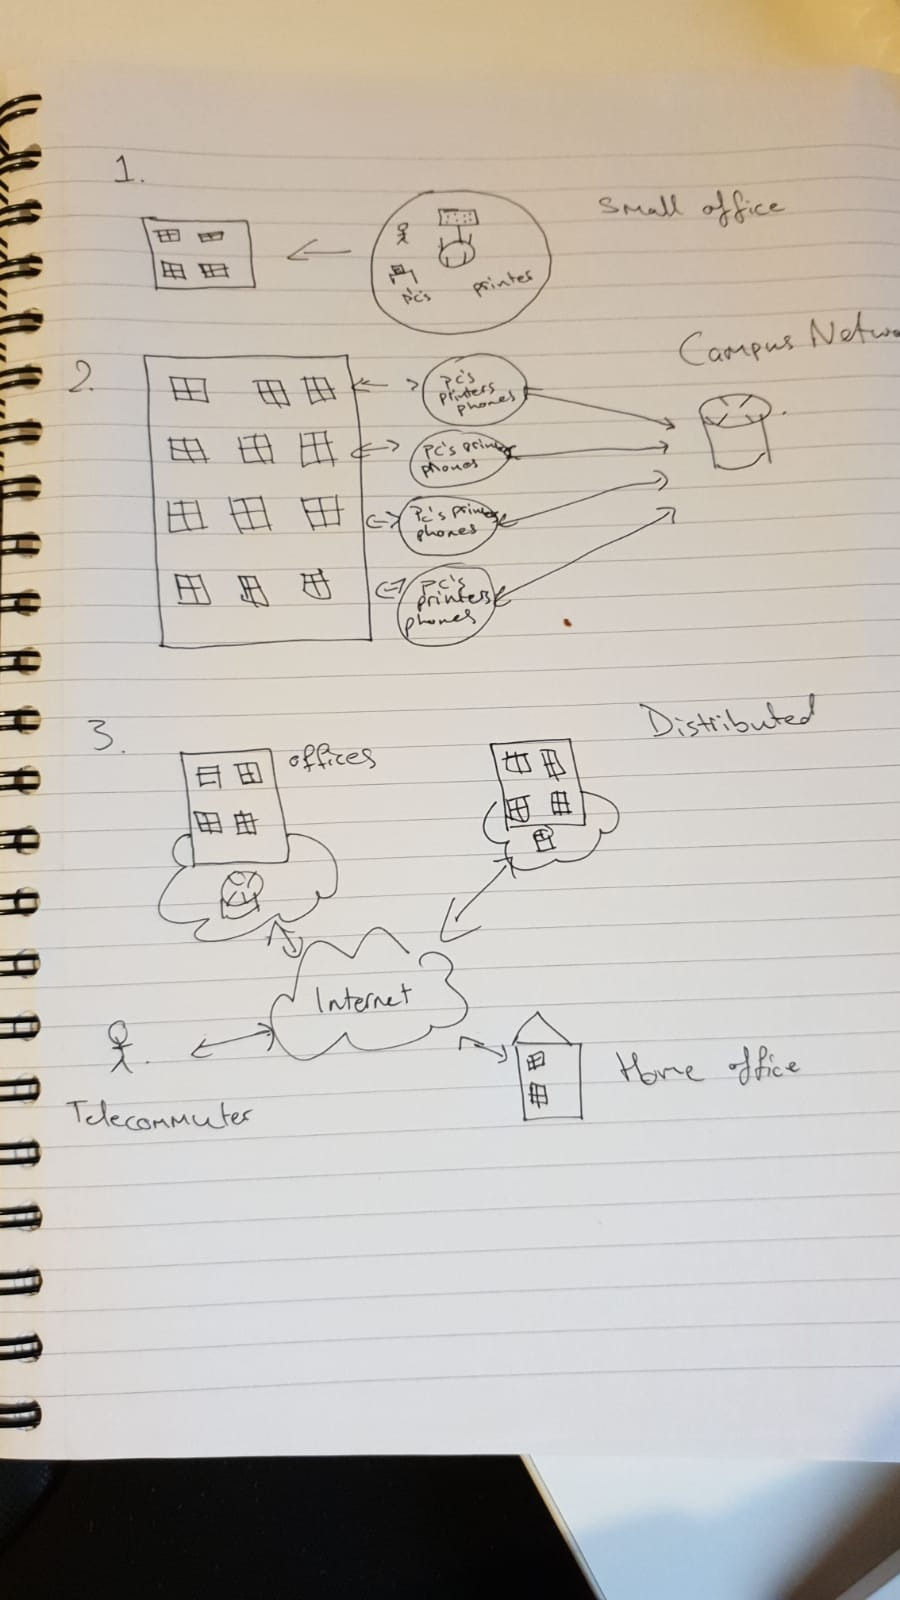 1.
Small office
pc's
printer
2.
Campus Netwo
pc's
printers
phones
pc's printer
phones
pc's printer
phones
pc's
printers
phones
3.
Distributed
offices
Internet
Home office
Telecommuter